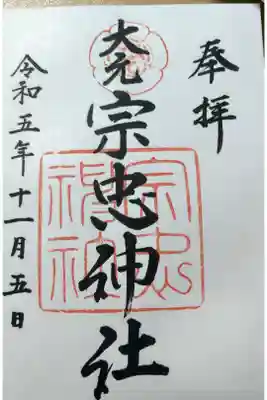 奉拝
大元
宗忠神社
令和五年十一月五日
宗忠
神社